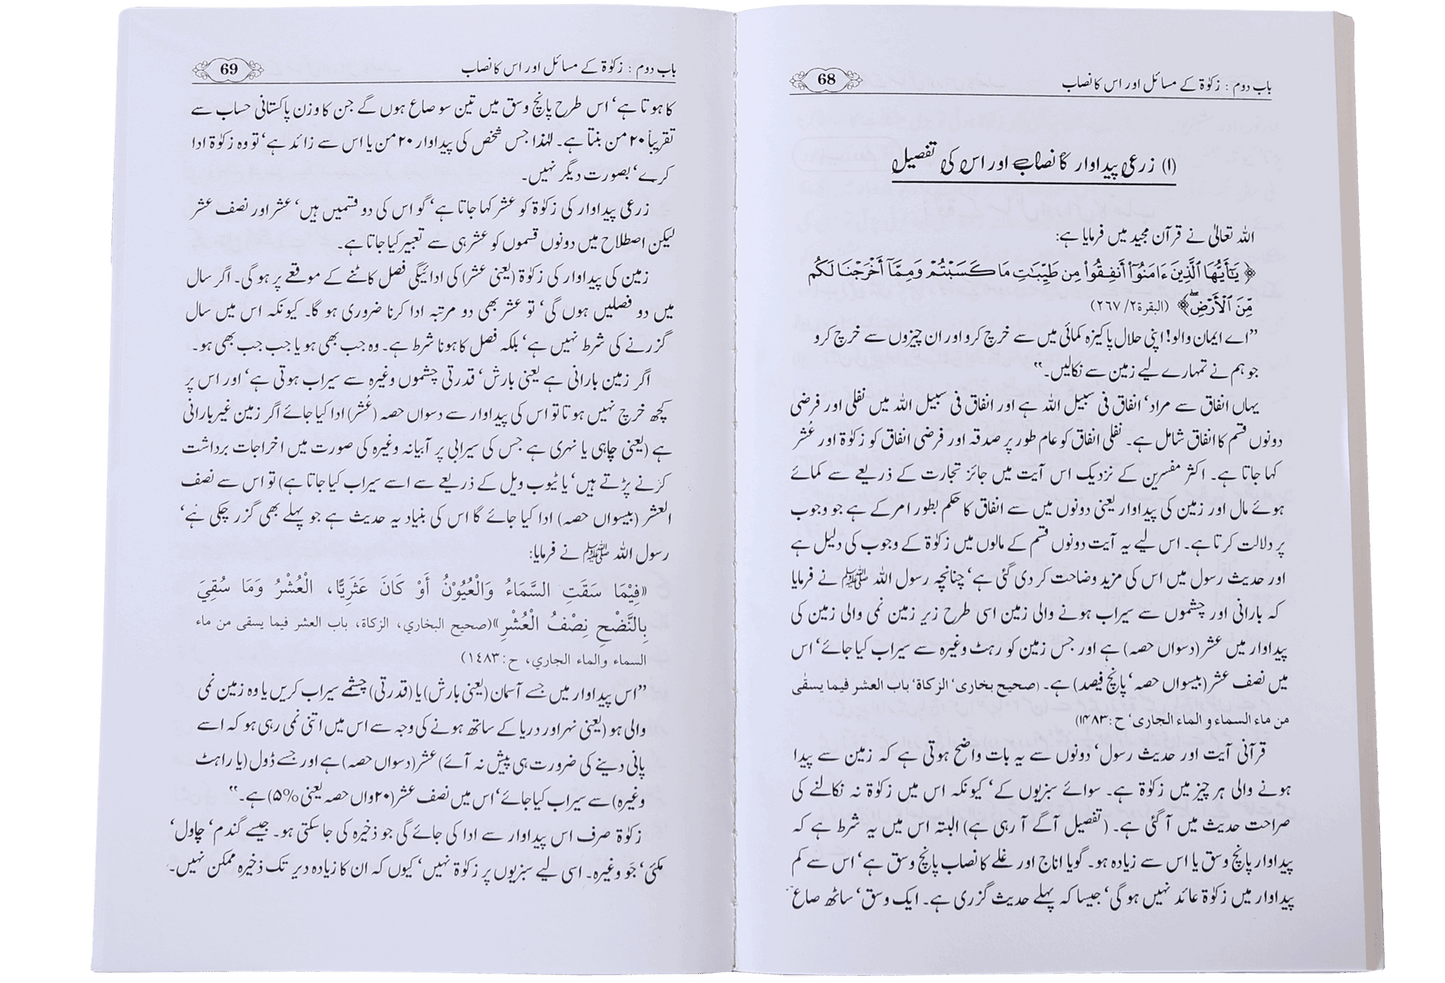 باب دوم : زکوٰۃ کے مسائل اور اس کا نصاب 68
(۱) زرعی پیداوار کا نصاب اور اس کی تفصیل
اللہ تعالیٰ نے قرآن مجید میں فرمایا ہے:
﴿ يَٰٓأَيُّهَا ٱلَّذِينَ ءَامَنُوٓاْ أَنفِقُواْ مِن طَيِّبَٰتِ مَا كَسَبْتُمْ وَمِمَّآ أَخْرَجْنَا لَكُم
مِّنَ ٱلْأَرْضِۖ ﴾ (البقرة۲/ ۲٦۷)
”اے ایمان والو! اپنی حلال پاکیزہ کمائی میں سے خرچ کرو اور ان چیزوں سے خرچ کرو
جو ہم نے تمہارے لیے زمین سے نکالیں۔“
یہاں انفاق سے مراد‘ انفاق فی سبیل اللہ ہے اور انفاق فی سبیل اللہ میں نفلی اور فرضی
دونوں قسم کا انفاق شامل ہے۔ نفلی انفاق کو عام طور پر صدقہ اور فرضی انفاق کو زکوٰۃ اور عُشر
کہا جاتا ہے۔ اکثر مفسرین کے نزدیک اس آیت میں جائز تجارت کے ذریعے سے کمائے
ہوئے مال اور زمین کی پیداوار یعنی دونوں میں سے انفاق کا حکم بطور امر کے ہے جو وجوب
پر دلالت کرتا ہے۔ اس لیے یہ آیت دونوں قسم کے مالوں میں زکوٰۃ کے وجوب کی دلیل ہے
اور حدیث رسول میں اس کی مزید وضاحت کر دی گئی ہے‘ چنانچہ رسول اللہ ﷺ نے فرمایا
کہ بارانی اور چشموں سے سیراب ہونے والی زمین اسی طرح زیر زمین نمی والی زمین کی
پیداوار میں عشر (دسواں حصہ) ہے اور جس زمین کو رہٹ وغیرہ سے سیراب کیا جائے‘ اس
میں نصف عشر (بیسواں حصہ‘ پانچ فیصد) ہے۔ (صحیح بخاری‘ الزکاۃ‘ باب العشر فیما یسقٰی
من ماء السماء و الماء الجاری‘ ح:۱۴۸۳)
قرآنی آیت اور حدیث رسول‘ دونوں سے یہ بات واضح ہوتی ہے کہ زمین سے پیدا
ہونے والی ہر چیز میں زکوٰۃ ہے۔ سوائے سبزیوں کے‘ کیونکہ اس میں زکوٰۃ نہ نکالنے کی
صراحت حدیث میں آ گئی ہے۔ (تفصیل آگے آ رہی ہے) البتہ اس میں یہ شرط ہے کہ
پیداوار پانچ وسق یا اس سے زیادہ ہو۔ گویا اناج اور غلے کا نصاب پانچ وسق ہے‘ اس سے کم
پیداوار میں زکوٰۃ عائد نہیں ہو گی‘ جیسا کہ پہلے حدیث گزری ہے۔ ایک وسق‘ ساٹھ صاع
باب دوم : زکوٰۃ کے مسائل اور اس کا نصاب 69
کا ہوتا ہے‘ اس طرح پانچ وسق میں تین سو صاع ہوں گے جن کا وزن پاکستانی حساب سے
تقریباً ۲۰ من بنتا ہے۔ لہٰذا جس شخص کی پیداوار ۲۰ من یا اس سے زائد ہے‘ تو وہ زکوٰۃ ادا
کرے‘ بصورت دیگر نہیں۔
زرعی پیداوار کی زکوٰۃ کو عشر کہا جاتا ہے‘ گو اس کی دو قسمیں ہیں‘ عشر اور نصف عشر
لیکن اصطلاح میں دونوں قسموں کو عشر ہی سے تعبیر کیا جاتا ہے۔
زمین کی پیداوار کی زکوٰۃ (یعنی عشر) کی ادائیگی فصل کاٹنے کے موقعے پر ہو گی۔ اگر سال
میں دو فصلیں ہوں گی‘ تو عشر بھی دو مرتبہ ادا کرنا ضروری ہو گا۔ کیونکہ اس میں سال
گزرنے کی شرط نہیں ہے‘ بلکہ فصل کا ہونا شرط ہے۔ وہ جب بھی ہو یا جب جب بھی ہو۔
اگر زمین بارانی ہے یعنی بارش‘ قدرتی چشموں وغیرہ سے سیراب ہوتی ہے‘ اور اس پر
کچھ خرچ نہیں ہوتا تو اس کی پیداوار سے دسواں حصہ (عُشر) ادا کیا جائے اگر زمین غیر بارانی
ہے (یعنی چاہی یا نہری ہے جس کی سیرابی پر آبیانہ وغیرہ کی صورت میں اخراجات برداشت
کرنے پڑتے ہیں‘ یا ٹیوب ویل کے ذریعے سے اسے سیراب کیا جاتا ہے) تو اس سے نصف
العشر (بیسواں حصہ) ادا کیا جائے گا اس کی بنیاد یہ حدیث ہے جو پہلے بھی گزر چکی ہے‘
رسول اللہ ﷺ نے فرمایا:
«فِيْمَا سَقَتِ السَّمَاءُ وَالْعُيُوْنُ أَوْ كَانَ عَثَرِيًّا، الْعُشْرُ وَمَا سُقِيَ
بِالنَّضْحِ نِصْفُ الْعُشْرِ»(صحيح البخاري، الزكاة، باب العشر فيما يسقى من ماء
السماء والماء الجاري، ح:١٤٨٣)
”اس پیداوار میں جسے آسمان (یعنی بارش) یا (قدرتی) چشمے سیراب کریں یا وہ زمین نمی
والی ہو (یعنی نہر اور دریا کے ساتھ ہونے کی وجہ سے اس میں اتنی نمی رہی ہو کہ اسے
پانی دینے کی ضرورت ہی پیش نہ آئے) عشر (دسواں حصہ) ہے اور جسے ڈول (یا راہٹ
وغیرہ) سے سیراب کیا جائے‘ اس میں نصف عشر (۲۰واں حصہ یعنی %۵) ہے۔“
زکوٰۃ صرف اس پیداوار سے ادا کی جائے گی جو ذخیرہ کی جا سکتی ہو۔ جیسے گندم‘ چاول‘
مکئی‘ جَو وغیرہ۔ اسی لیے سبزیوں پر زکوٰۃ نہیں‘ کیوں کہ ان کا زیادہ دیر تک ذخیرہ ممکن نہیں۔